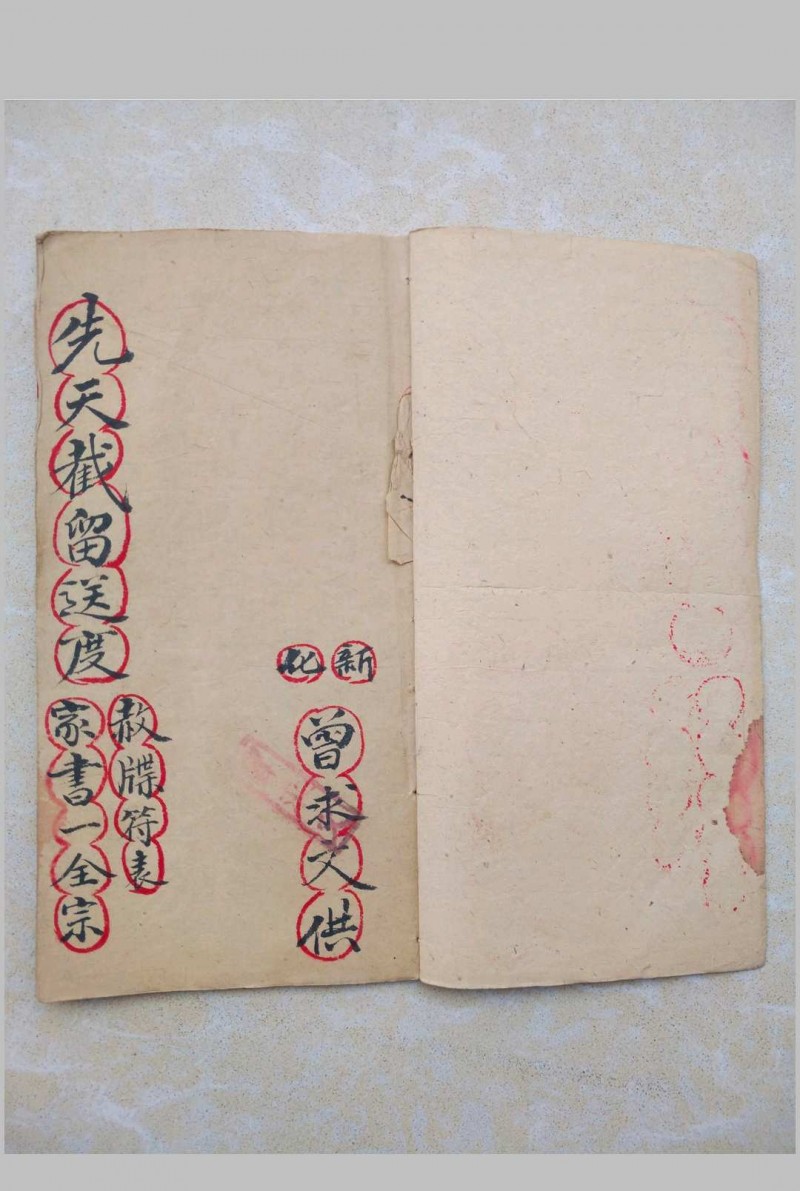 新化
曾求文供
赦牒符表
先天截留送度
家書一全宗